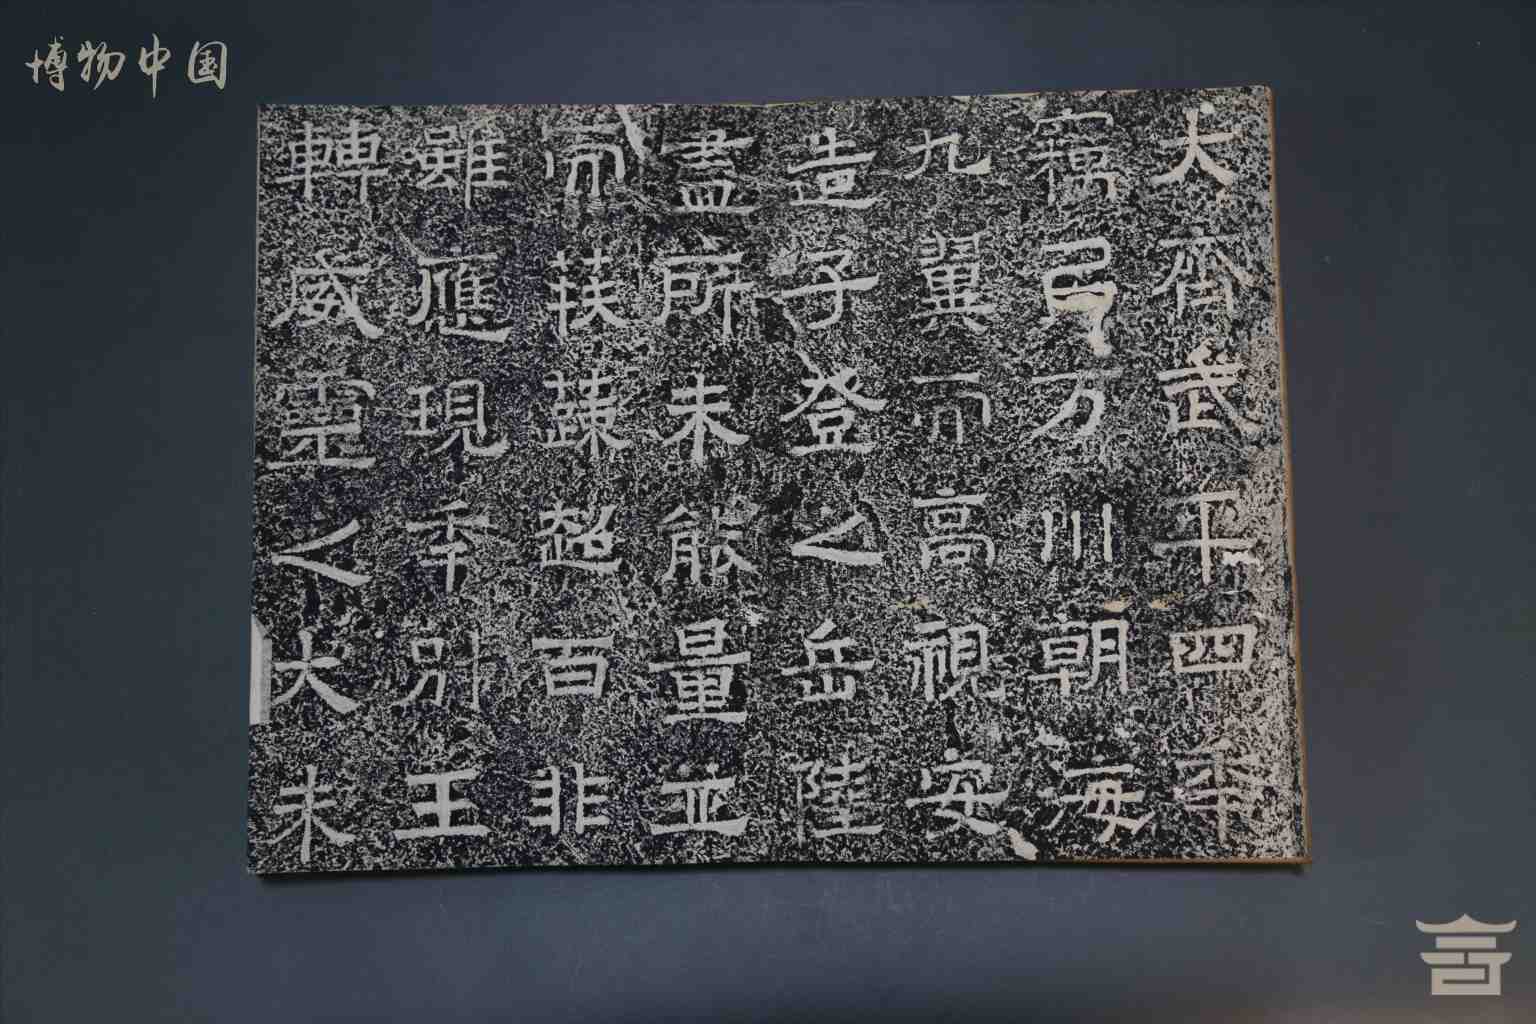 博物中国
大齊武平四年
竊
万川朝海
九翼而高視安
造子登之岳陸
盡所未能量並
而扶疎超百非
雖應現千別王
轉威靈之大未